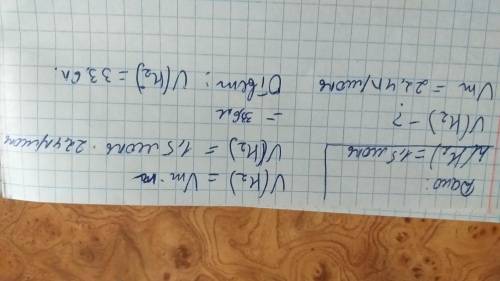 Дано:
n(H₂) = 1,5 моль
V(H₂) - ?
Vm = 22,4 л/моль
V(H₂) = Vm · n
V(H₂) = 1,5 моль · 22,4 л/моль
= 33,6 л
Ответ: V(H₂) = 33,6 л.